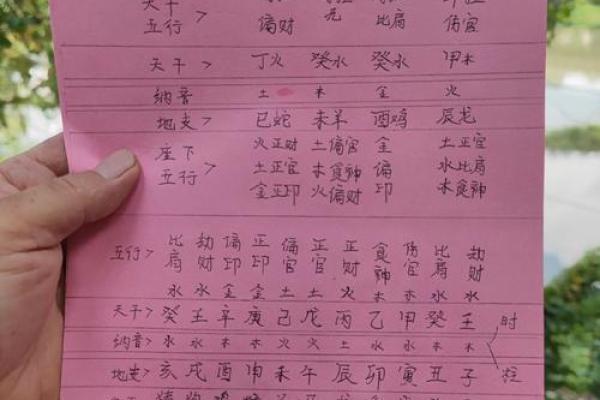 天干
五行> 偏财 比肩 伤官
天干> 丁火 癸水 癸水 甲木
纳音 土 木 金 火
地支> 巳蛇 未羊 酉鸡 辰龙
座下 火正财 土偏官 金 土正官
五行> 土正官 木食神 偏 水比肩
金正印 火偏财 印 木食神
五行> 比肩 劫财 偏印 正印 偏官 正官 正财 食神 伤官 比肩 劫财
水 水 金 金 土 土 火 木 木 水 水
天干> 癸 壬 辛 庚 己 戊 丙 乙 甲 癸 壬 时
纳音> 水 水 木 木 火 火 土 水 水 木 木
地支> 亥 戌 酉 申 未 午 辰 卯 寅 丑 子 柱